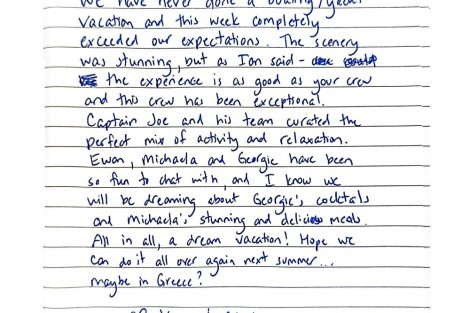 We have never done a boating/yacht
vacation and this week completely
exceeded our expectations. The scenery
was stunning, but as Ian said -
the experience is as good as your crew
and this crew has been exceptional.
Captain Joe and his team curated the
perfect mix of activity and relaxation.
Ewan, Michaela and Georgie have been
so fun to chat with, and I know we
will be dreaming about Georgie's cocktails
and Michaela's stunning and delicious meals.
All in all, a dream vacation! Hope we
can do it all over again next summer...
maybe in Greece?